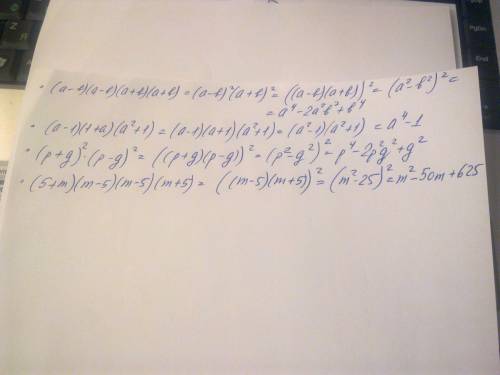 • (a-b)(a-b)(a+b)(a+b) = (a-b)²(a+b)² = ((a-b)(a+b))² = (a²-b²)² =
= a⁴-2a²b²+b⁴
• (a-1)(1+a)(a²+1) = (a-1)(a+1)(a²+1) = (a²-1)(a²+1) = a⁴-1
• (p+g)²·(p-g)² = ((p+g)(p-g))² = (p²-g²)² = p⁴-2p²g²+g²
• (5+m)(m-5)(m-5)(m+5) = ((m-5)(m+5))² = (m²-25)² = m²-50m+625